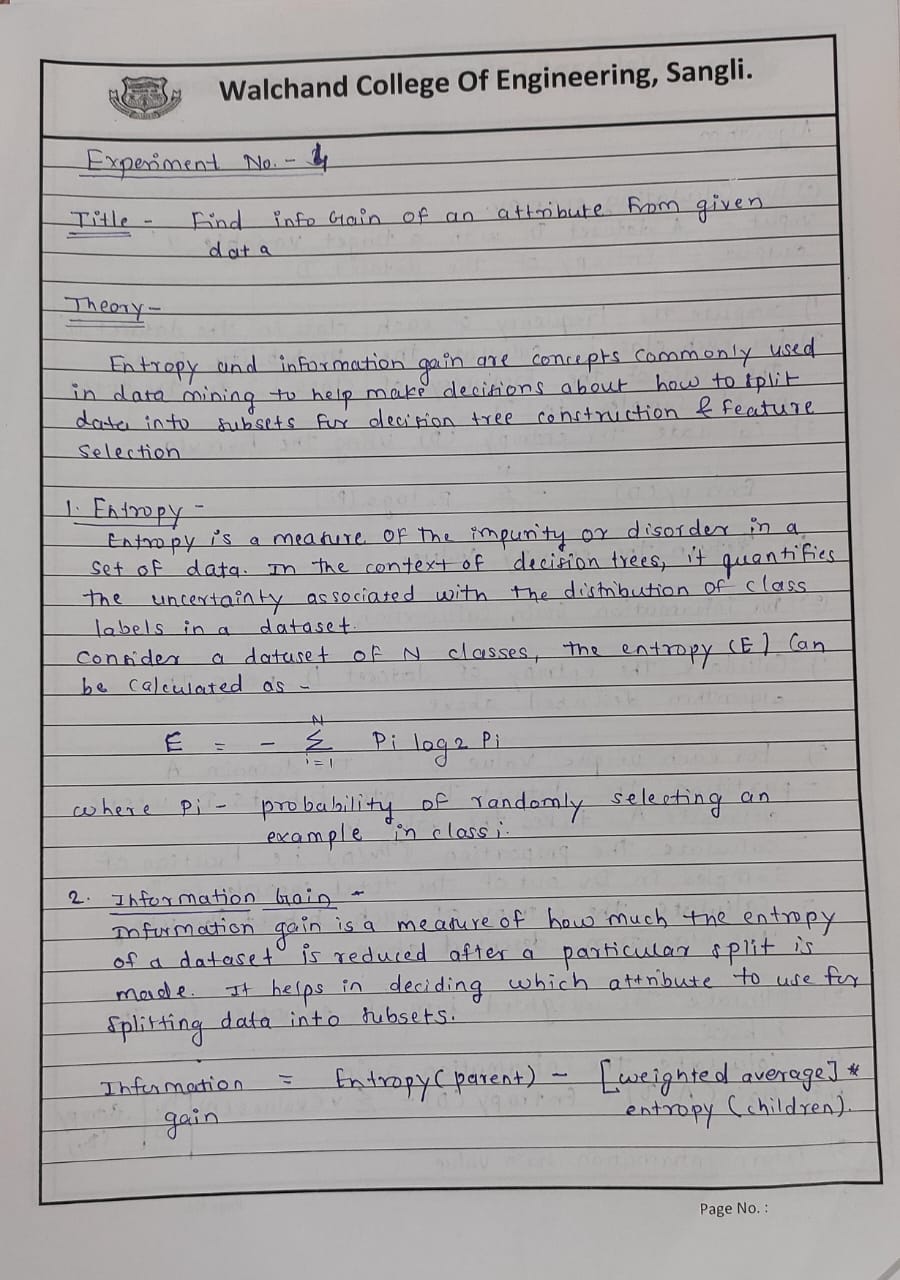 Walchand College Of Engineering, Sangli.
Experiment No. - 4
Title - Find info Gain of an attribute from given
data
Theory -
Entropy and information gain are concepts commonly used
in data mining to help make decisions about how to split
data into subsets for decision tree construction & feature
selection
1. Entropy -
Entropy is a measure of the impurity or disorder in a
set of data. In the context of decision trees, it quantifies
the uncertainty associated with the distribution of class
labels in a dataset.
Consider a dataset of N classes, the entropy (E) can
be calculated as -
E = - N∑i=1 Pi log2 Pi
where Pi - probability of randomly selecting an
example in class i.
2. Information Gain -
Information gain is a measure of how much the entropy
of a dataset is reduced after a particular split is
made. It helps in deciding which attribute to use for
splitting data into subsets.
Information = Entropy (parent) - [weighted average] *
gain entropy (children).
Page No. :